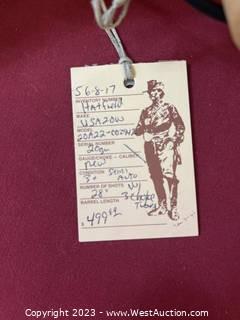 56-8-17
INVENTORY NUMBER
Hatfield
MAKE
USA20W
MODEL
SERIAL NUMBER
20ga
GAUGE/CHOKE - CALIBER
New
CONDITION Semi
3+ Auto
NUMBER OF SHOTS W/
28" 3 choke
BARREL LENGTH Tubes
$ 499
Copyright © 2023 - WestAuction.com